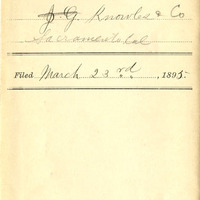 J. G. Knowles & Co
Sacramento Cal
Filed March 23rd, 1895.